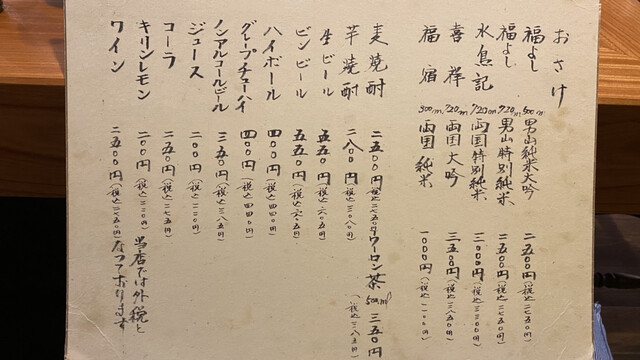 おさけ
福よし 500ml 男山純米大吟 二五〇〇円(税込二七五〇円)
福よし 720ml 男山特別純米 二五〇〇円(税込二七五〇円)
水鳥記 720ml 両国特別純米 三〇〇〇円(税込三三〇〇円)
喜祥 720ml 両国大吟 三五〇〇円(税込三八五〇円)
福宿 300ml 両国純米 一〇〇〇円(税込一一〇〇円)
麦焼酎 二五〇〇円(税込二七五〇円)
ウーロン茶 500ml 三五〇円(税込三八五円)
芋焼酎 二八〇〇円(税込三〇八〇円)
生ビール 五五〇円(税込六〇五円)
ビンビール 五五〇円(税込六〇五円)
ハイボール 四〇〇円(税込四四〇円)
グレープチューハイ 四〇〇円(税込四四〇円)
ノンアルコールビール 三五〇円(税込三八五円)
ジュース 二〇〇円(税込二二〇円)
コーラ 二五〇円(税込二七五円)
キリンレモン 二〇〇円(税込二二〇円)
ワイン 二五〇〇円(税込二七五〇円)
当店では外税と
なっております